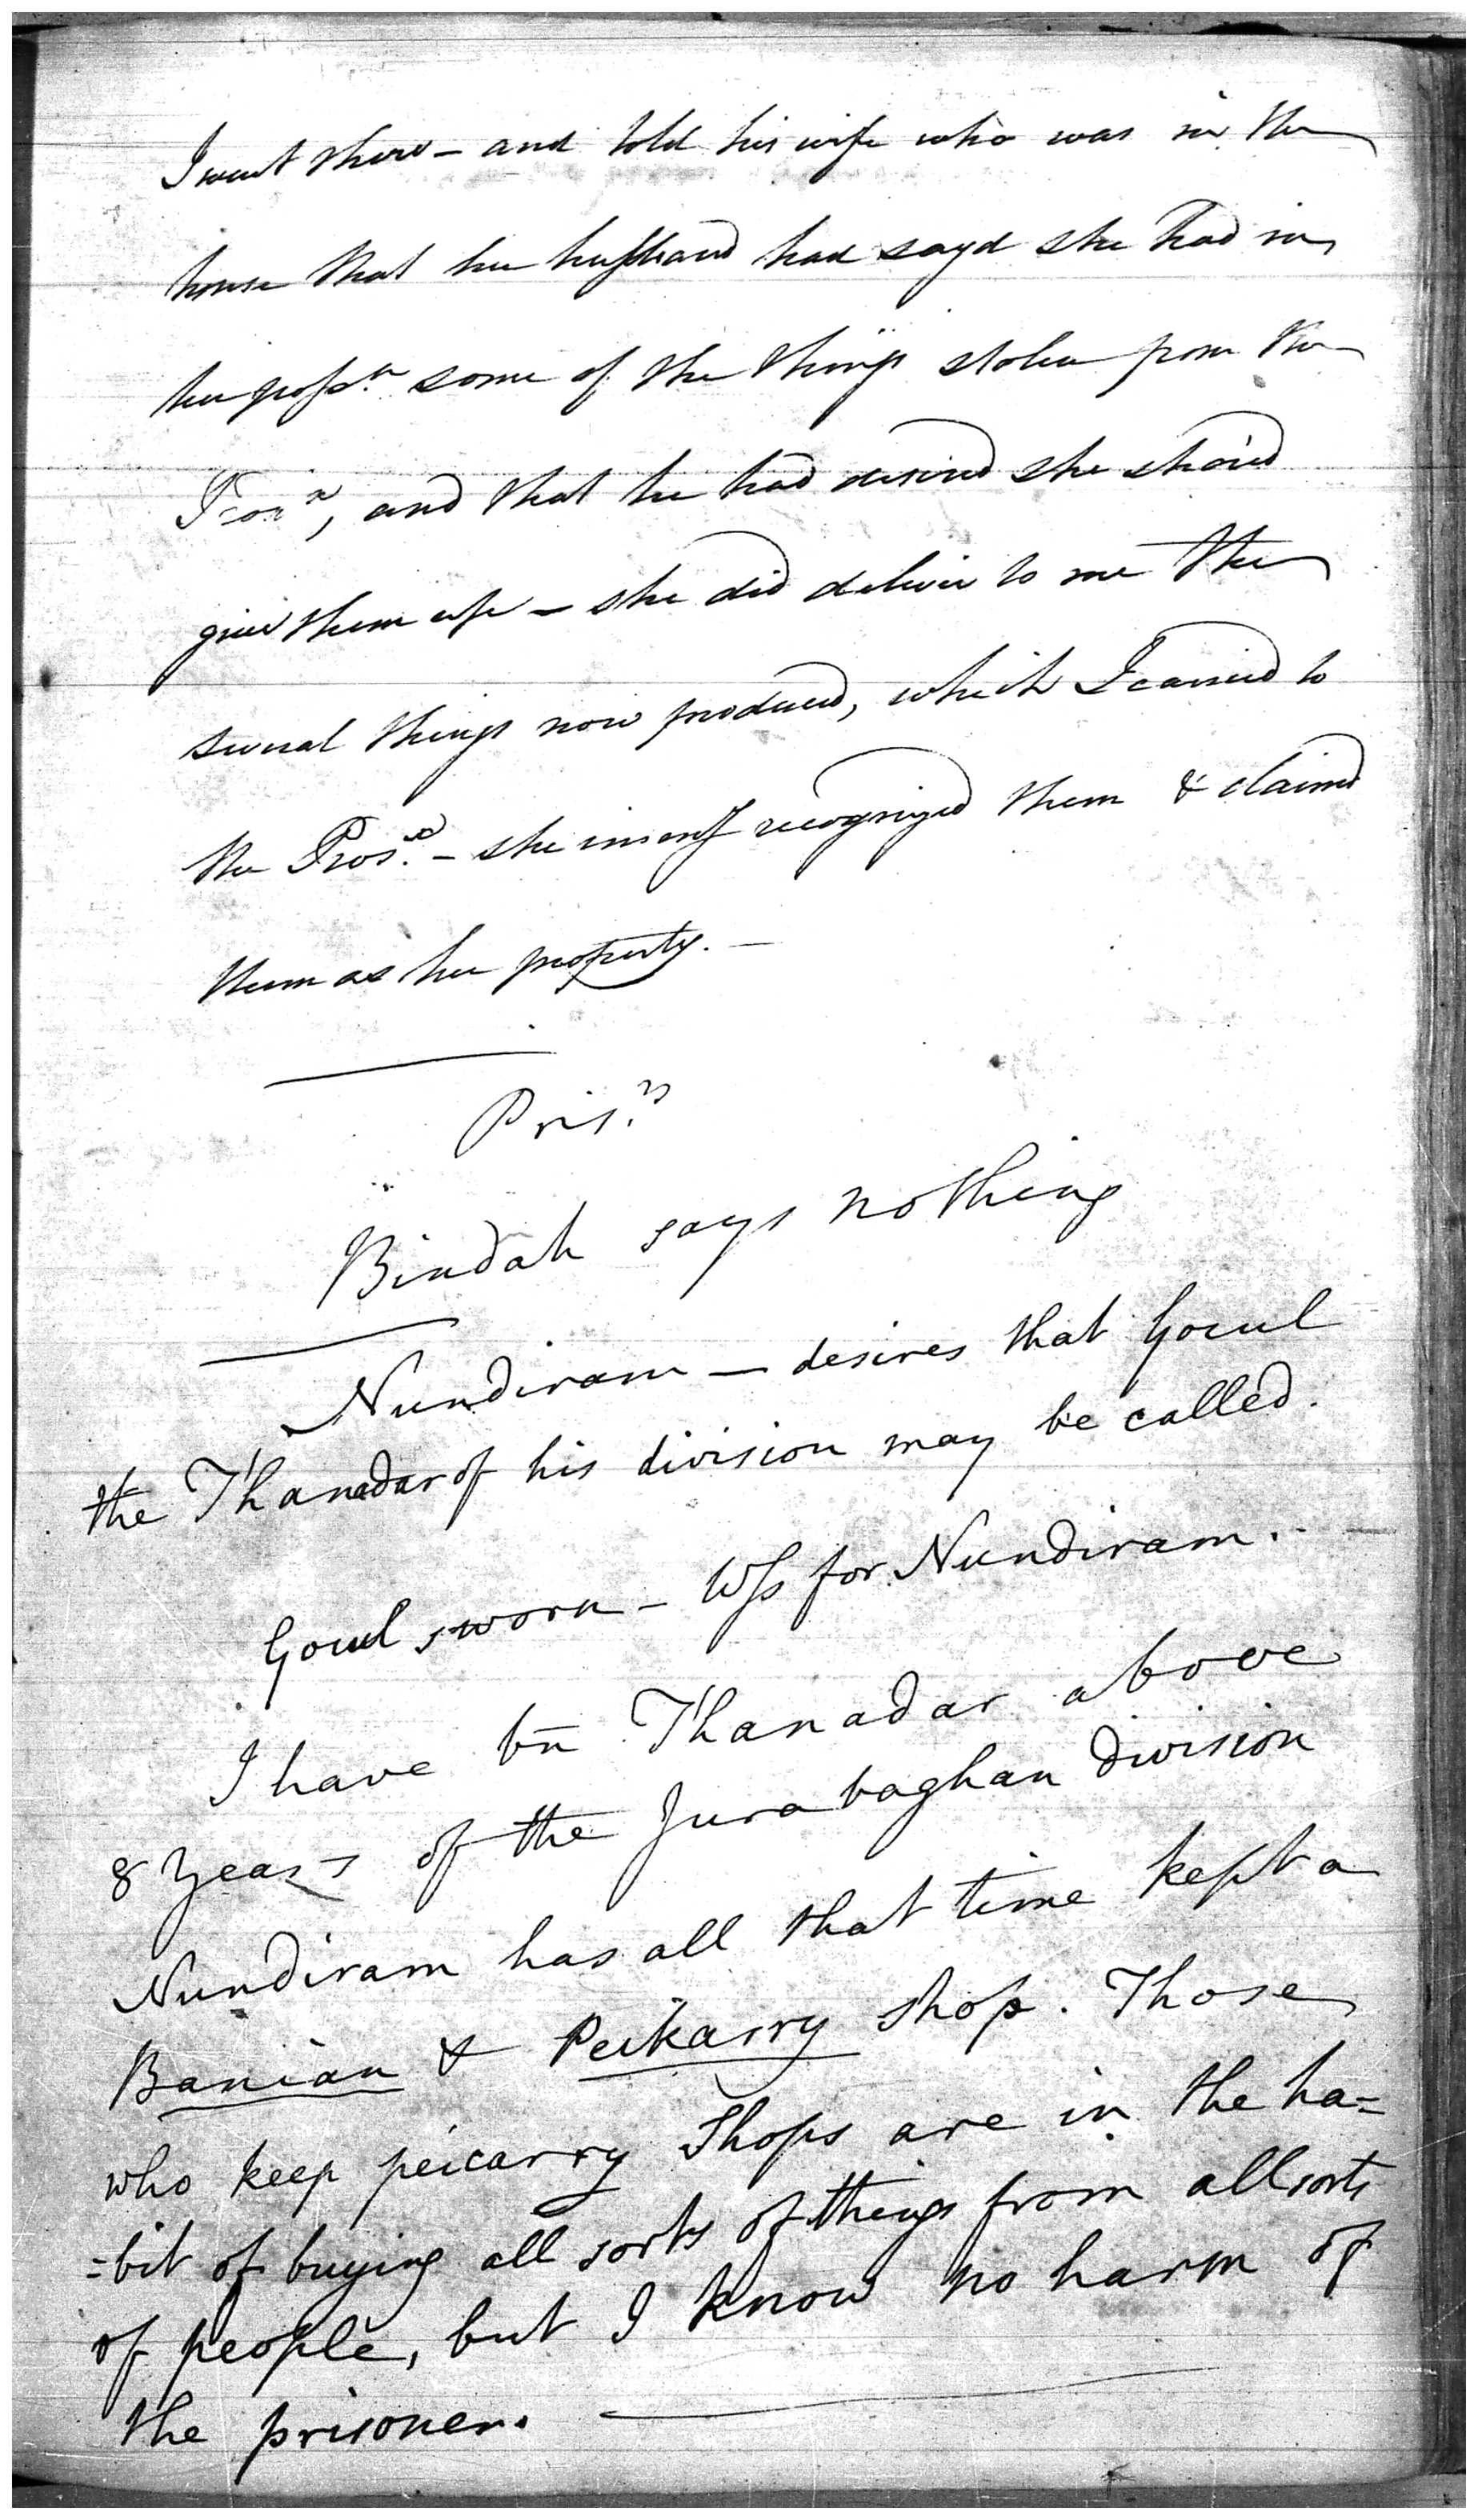 I went there - and told his wife who was in the
house that her husband had sayd she had in
her possn. some of the things stolen from the
and that he had desired she shou'd
give them up - she did deliver to me the
several things now produced, which I carried to
the Prosx. - she recognized them & claimed
them as her property. -
Prisn.
Bindah says nothing
Nundiram - desires that Gocul
the Thanadar of his division may be called.
Gocul sworn - Wss for Nundiram. -
I have bn Thanadar above
8 Years of the Jurabaghan division
Nundiram has all that time kept a
Banian & Peikarry shop. Those
who keep peicarry shops are in the ha=
=bit of buying all sorts of things from all sorts
of people, but I know no harm of
the prisoner.